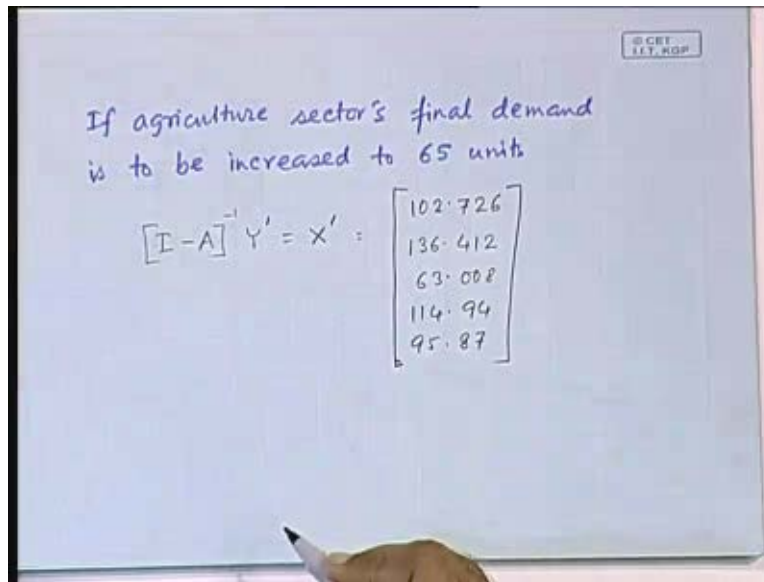 © CET
I.I.T. KGP
If agriculture sector's final demand
is to be increased to 65 units
[I-A]⁻¹ Y' = X' :
102.726
136.412
63.008
114.94
95.87